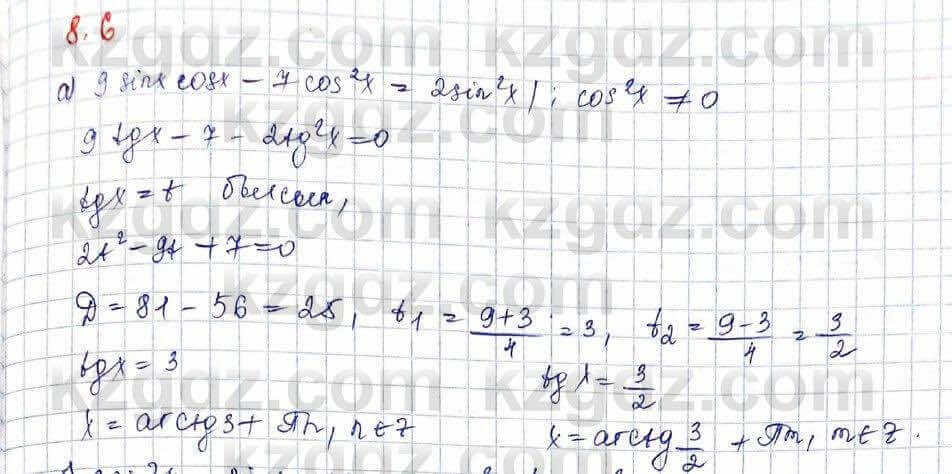 8.6
а) 9 sinx cosx − 7 cos²x = 2sin²x | : cos²x ≠ 0
9 tgx − 7 − 2tg²x = 0
tgx = t болсын,
2t² − 9t + 7 = 0
D = 81 − 56 = 25, t₁ = (9+3)/4 = 3, t₂ = (9−3)/4 = 3/2
tgx = 3 tgx = 3/2
x = arctg3 + πn, n∈Z x = arctg 3/2 + πm, m∈Z.
kzgdz.com